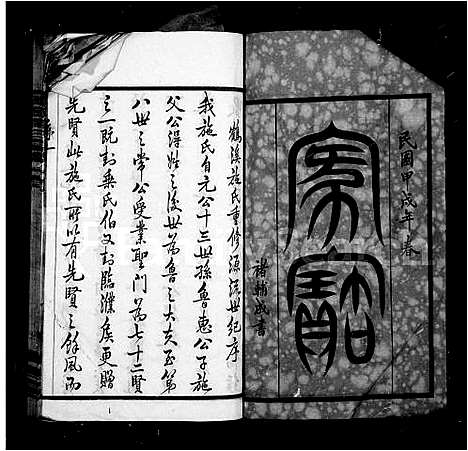 民國甲戌年春
宗譜
褚輔成書
鶴溪施氏重修源流世紀序
我施氏自元公十三世孫魯惠公子施
父公得姓之後世為魯之大夫至第
八世之常公受業聖門為七十二賢
之一既封乘氏伯又封臨濮侯更贈
先賢此施氏所以有先賢之餘風而
序一